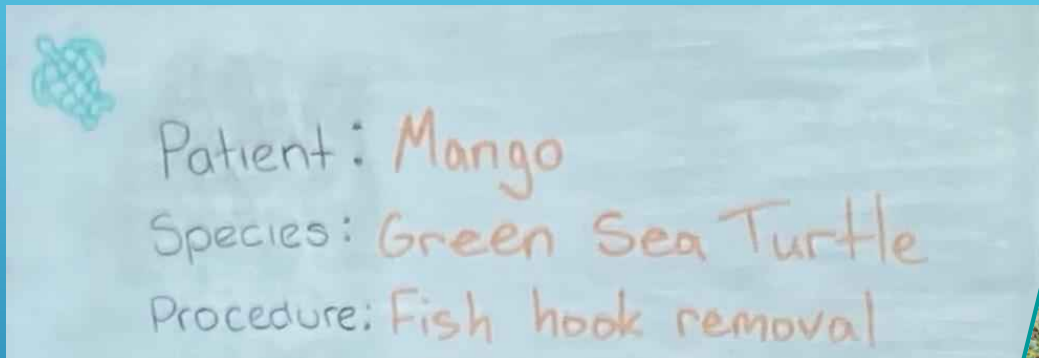 Patient: Mango
Species: Green Sea Turtle
Procedure: Fish hook removal